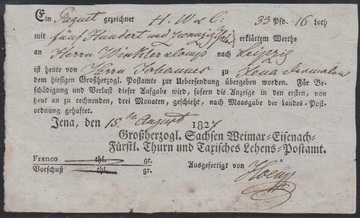 Ein Paquet gezeichnet H. W & C. 33 Pfd. 16 Loth
mit fünf Hundert und zwanzig erklärtem Werthe
an Herrn Winkler nach Leipzig
ist heute von Herrn Johannes zu Jena
dem hiesigen Großherzogl. Postamte zur Uebersendung übergeben worden. Für Be-
schädigung und Verlust dieser Aufgabe wird, sofern die Anzeige in den ersten, von
heut an zu rechnenden, drei Monaten, geschieht, nach Maasgabe der Landes-Post-
ordnung gehaftet.
Jena, den 15 ten August 1827
Großherzogl. Sachsen Weimar-Eisenach-
Fürstl. Thurn und Taxisches Lehens-Postamt.
Franco thl. gr. Ausgefertigt von
Vorschuß thl. gr.